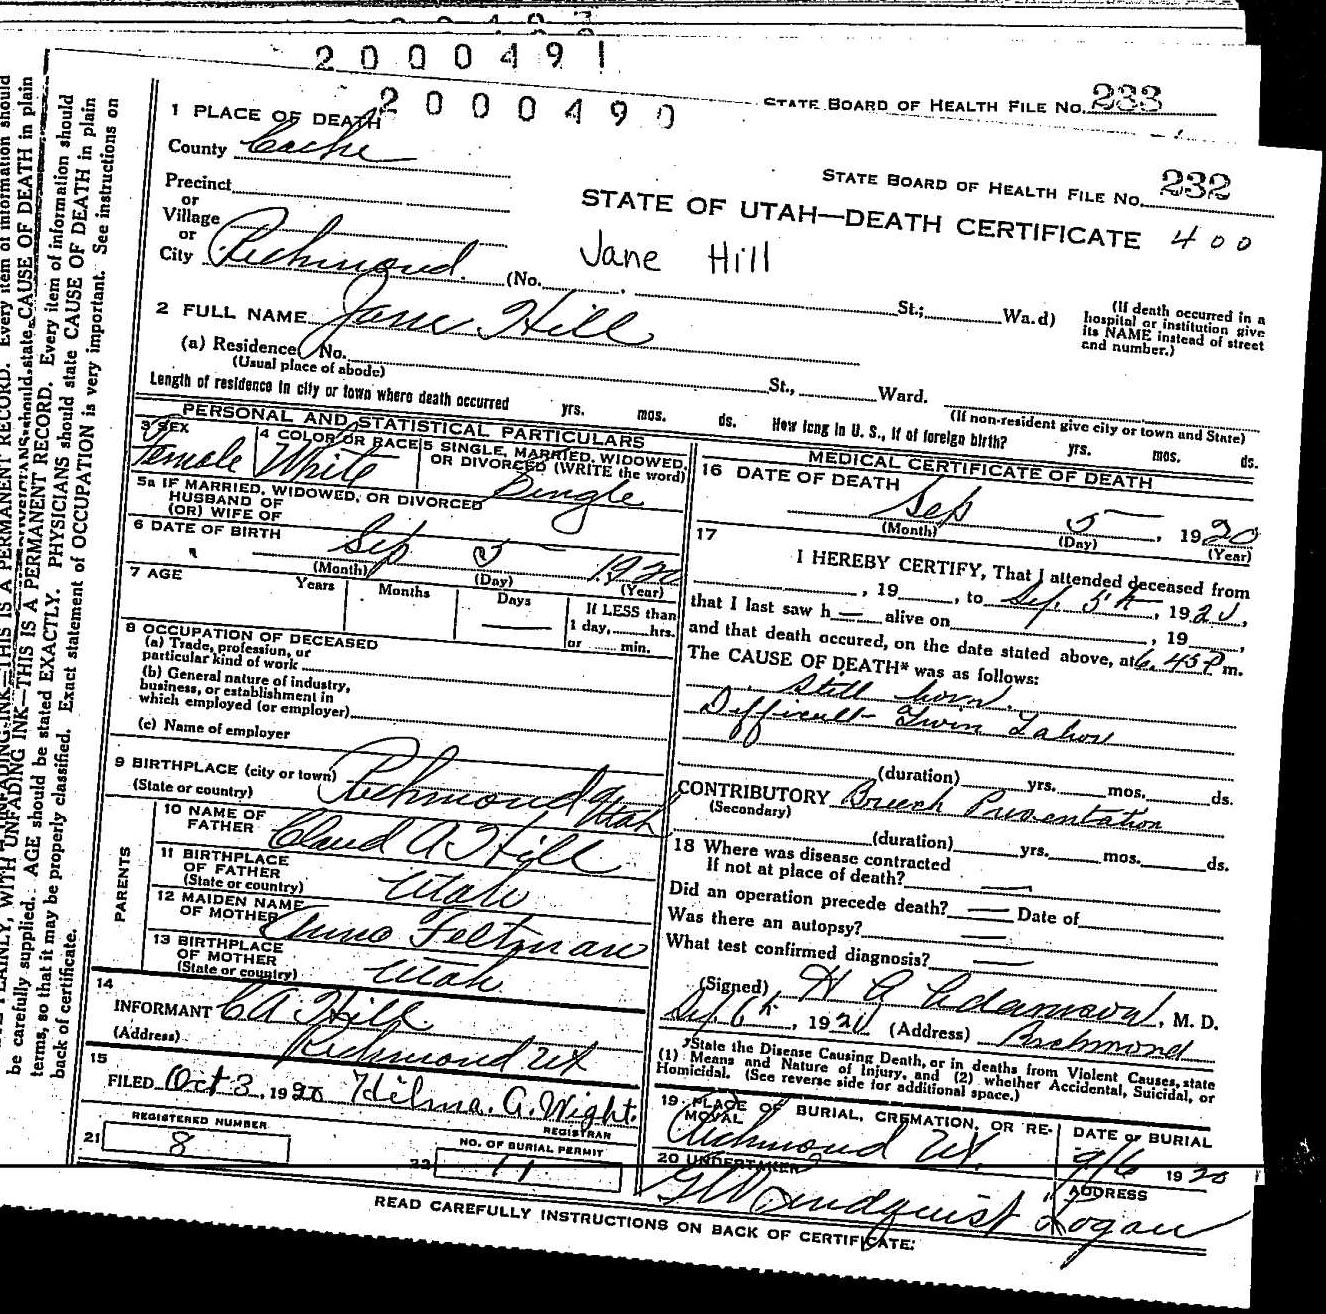 2000491
2000490
STATE BOARD OF HEALTH FILE No. 233
STATE BOARD OF HEALTH FILE No. 232
STATE OF UTAH—DEATH CERTIFICATE 400
Jane Hill
1 PLACE OF DEATH
County Cache
Precinct
or
Village
or
City Richmond. (No. St.; Wa.d)
(If death occurred in a
hospital or institution give
its NAME instead of street
and number.)
2 FULL NAME Jane Hill
(a) Residence No. St., Ward.
(Usual place of abode)
(If non-resident give city or town and State)
Length of residence in city or town where death occurred yrs. mos. ds. How long in U. S., if of foreign birth? yrs. mos. ds.
PERSONAL AND STATISTICAL PARTICULARS
3 SEX
Female
4 COLOR OR RACE
White
5 SINGLE, MARRIED, WIDOWED,
OR DIVORCED (WRITE the word)
Single
5a IF MARRIED, WIDOWED, OR DIVORCED
HUSBAND OF
(OR) WIFE OF
6 DATE OF BIRTH
Sep 5 1920
(Month) (Day) (Year)
7 AGE Years Months Days
If LESS than
1 day, hrs.
or min.
8 OCCUPATION OF DECEASED
(a) Trade, profession, or
particular kind of work
(b) General nature of industry,
business, or establishment in
which employed (or employer)
(c) Name of employer
9 BIRTHPLACE (city or town)
(State or country)
Richmond Utah
PARENTS
10 NAME OF
FATHER
Claud A Hill
11 BIRTHPLACE
OF FATHER
(State or country)
Utah
12 MAIDEN NAME
OF MOTHER
Feltman
13 BIRTHPLACE
OF MOTHER
(State or country)
Utah
14
INFORMANT C A Hill
(Address) Richmond Ut
15
FILED Oct 3, 1920 Hilma. G. Wight.
REGISTRAR
21
REGISTERED NUMBER
8
22
NO. OF BURIAL PERMIT
11
MEDICAL CERTIFICATE OF DEATH
16 DATE OF DEATH
Sep 5, 1920
(Month) (Day) (Year)
17
I HEREBY CERTIFY, That I attended deceased from
, 19 , to Sep. 5th, 1920,
that I last saw h— alive on , 19 ,
and that death occured, on the date stated above, at 6.45 P m.
The CAUSE OF DEATH* was as follows:
Still born.
Difficult Twin Labor
(duration) yrs. mos. ds.
CONTRIBUTORY Breech Presentation
(Secondary)
(duration) yrs. mos. ds.
18 Where was disease contracted
If not at place of death? —
Did an operation precede death? — Date of
Was there an autopsy? —
What test confirmed diagnosis? —
(Signed) H G Adamson, M. D.
Sep. 6th, 1920 (Address) Richmond
*State the Disease Causing Death, or in deaths from Violent Causes, state
(1) Means and Nature of Injury, and (2) whether Accidental, Suicidal, or
Homicidal. (See reverse side for additional space.)
19 PLACE OF BURIAL, CREMATION, OR RE-
MOVAL
Richmond Ut.
DATE OF BURIAL
9/6 1920
20 UNDERTAKER
Lindquist
ADDRESS
Logan
READ CAREFULLY INSTRUCTIONS ON BACK OF CERTIFICATE.
PLAINLY, WITH UNFADING INK—THIS IS A PERMANENT RECORD. Every item of information should
be carefully supplied. AGE should be stated EXACTLY. PHYSICIANS should state CAUSE OF DEATH in plain
terms, so that it may be properly classified. Exact statement of OCCUPATION is very important. See instructions on
back of certificate.